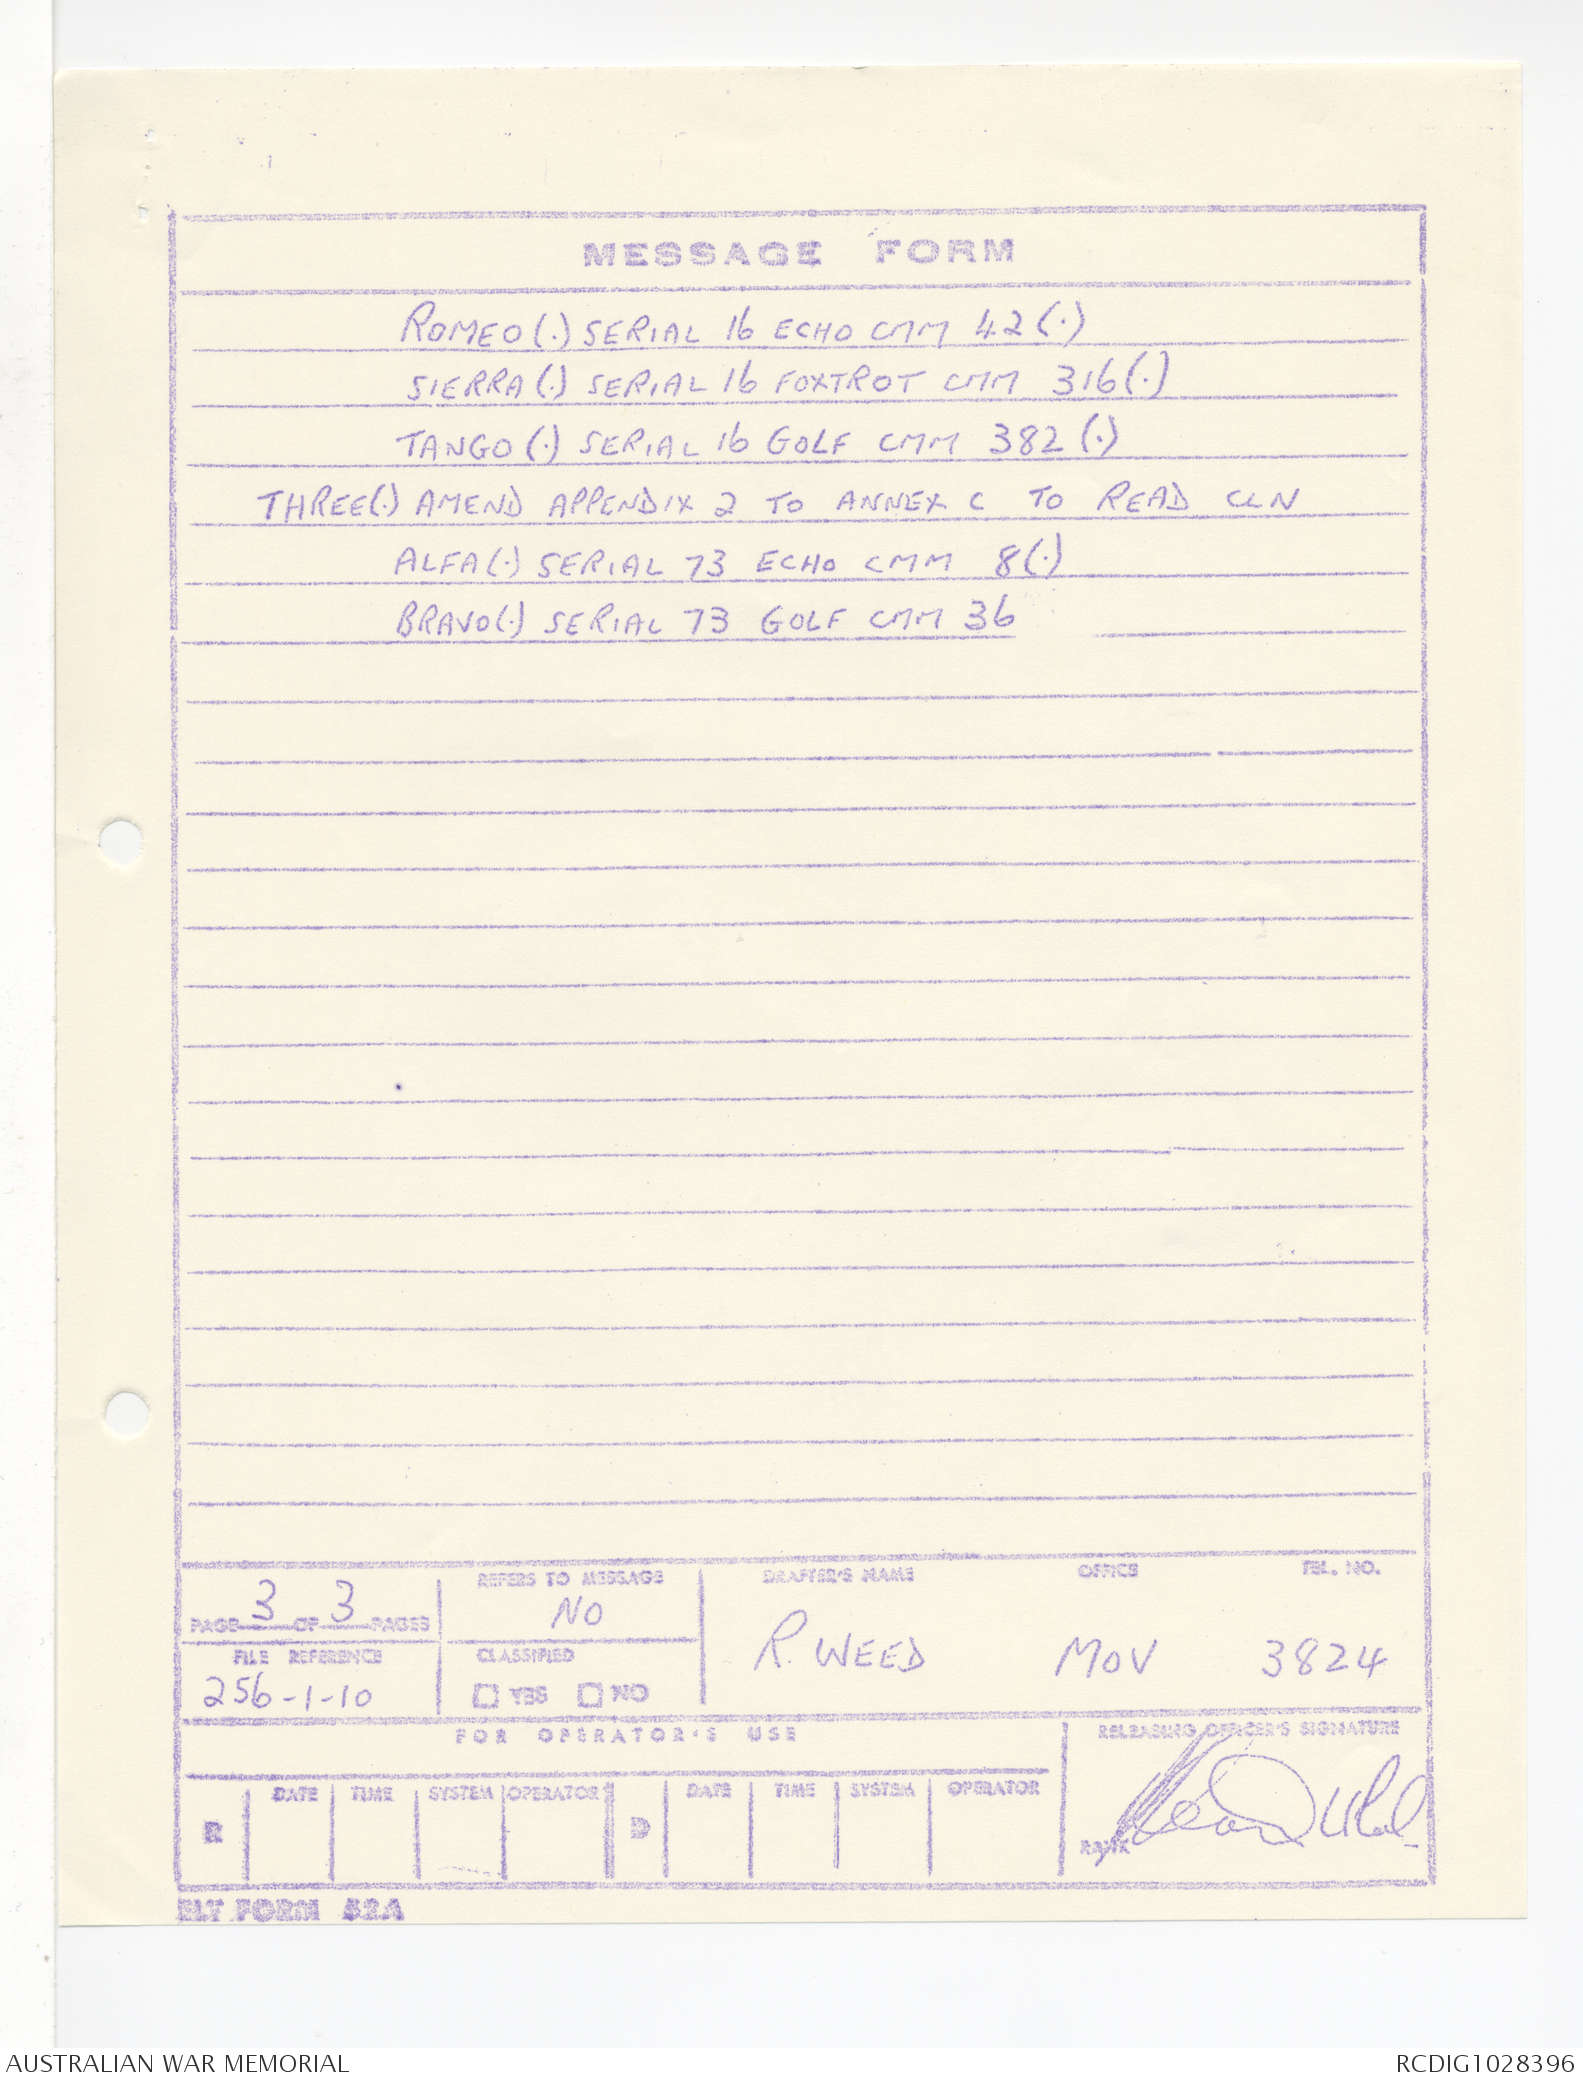 MESSAGE FORM
ROMEO(.) SERIAL 16 ECHO CMM 42(.)
SIERRA(.) SERIAL 16 FOXTROT CMM 316(.)
TANGO(.) SERIAL 16 GOLF CMM 382(.)
THREE(.) AMEND APPENDIX 2 TO ANNEX C TO READ CLN
ALFA(.) SERIAL 73 ECHO CMM 8(.)
BRAVO(.) SERIAL 73 GOLF CMM 36
PAGE 3 OF 3 PAGES
REFERS TO MESSAGE
NO
DRAFTER'S NAME OFFICE TEL. NO.
R. WEED MOV 3824
FILE REFERENCE
256-1-10
CLASSIFIED
YES NO
FOR OPERATOR'S USE
RELEASING OFFICER'S SIGNATURE
R DATE TIME SYSTEM OPERATOR D DATE TIME SYSTEM OPERATOR
RANK
FORM 52A
AUSTRALIAN WAR MEMORIAL
RCDIG1028396